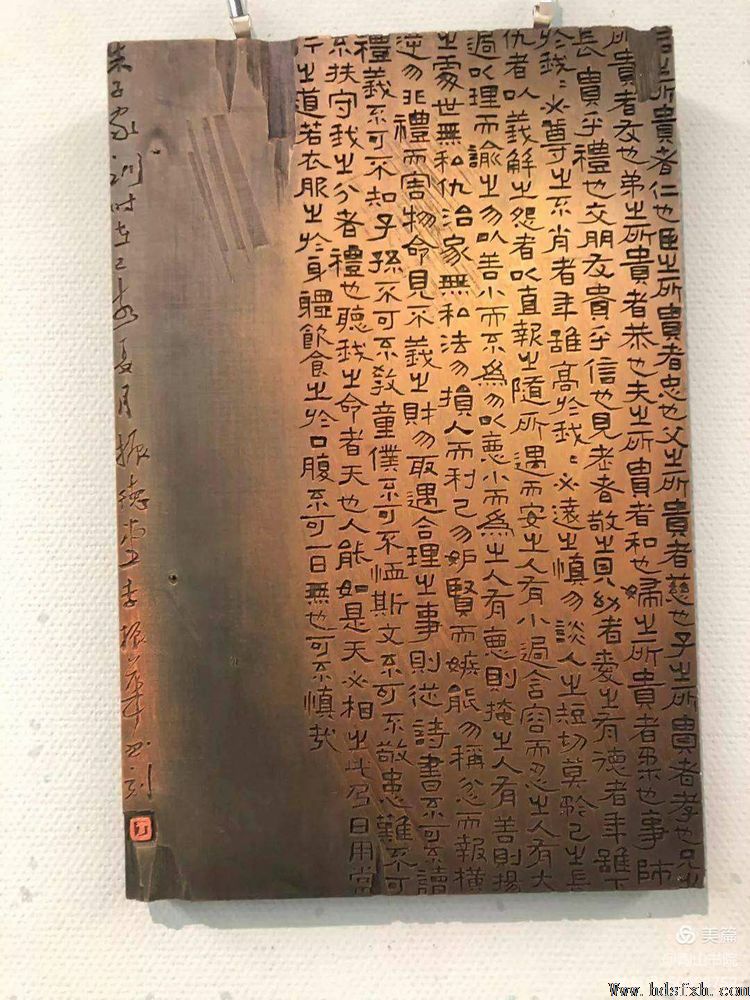 君之所貴者仁也臣之所貴者忠也父之所貴者慈也子之所貴者孝也兄之
所貴者友也弟之所貴者恭也夫之所貴者和也婦之所貴者柔也事師
長貴乎禮也交朋友貴乎信也見老者敬之見幼者愛之有德者年雖下
於我〻必尊之不肖者年雖高於我〻必遠之慎勿談人之短切莫矜己之長
仇者以義解之怨者以直報之隨所遇而安之人有小過含容而忍之人有大
過以理而諭之勿以善小而不為勿以惡小而為之人有惡則掩之人有善則揚
之處世無私仇治家無私法勿損人而利己勿妒賢而嫉能勿稱忿而報橫
逆勿非禮而害物命見不義之財勿取遇合理之事則從詩書不可不讀
禮義不可不知子孫不可不教童僕不可不恤斯文不可不敬患難不可
不扶守我之分者禮也聽我之命者天也人能如是天必相之此乃日用常
行之道若衣服之於身體飲食之於口腹不可一日無也可不慎哉
朱子家訓时在己亥夏月振德堂李振華書刻
美篇
Www.hdsfxh.com